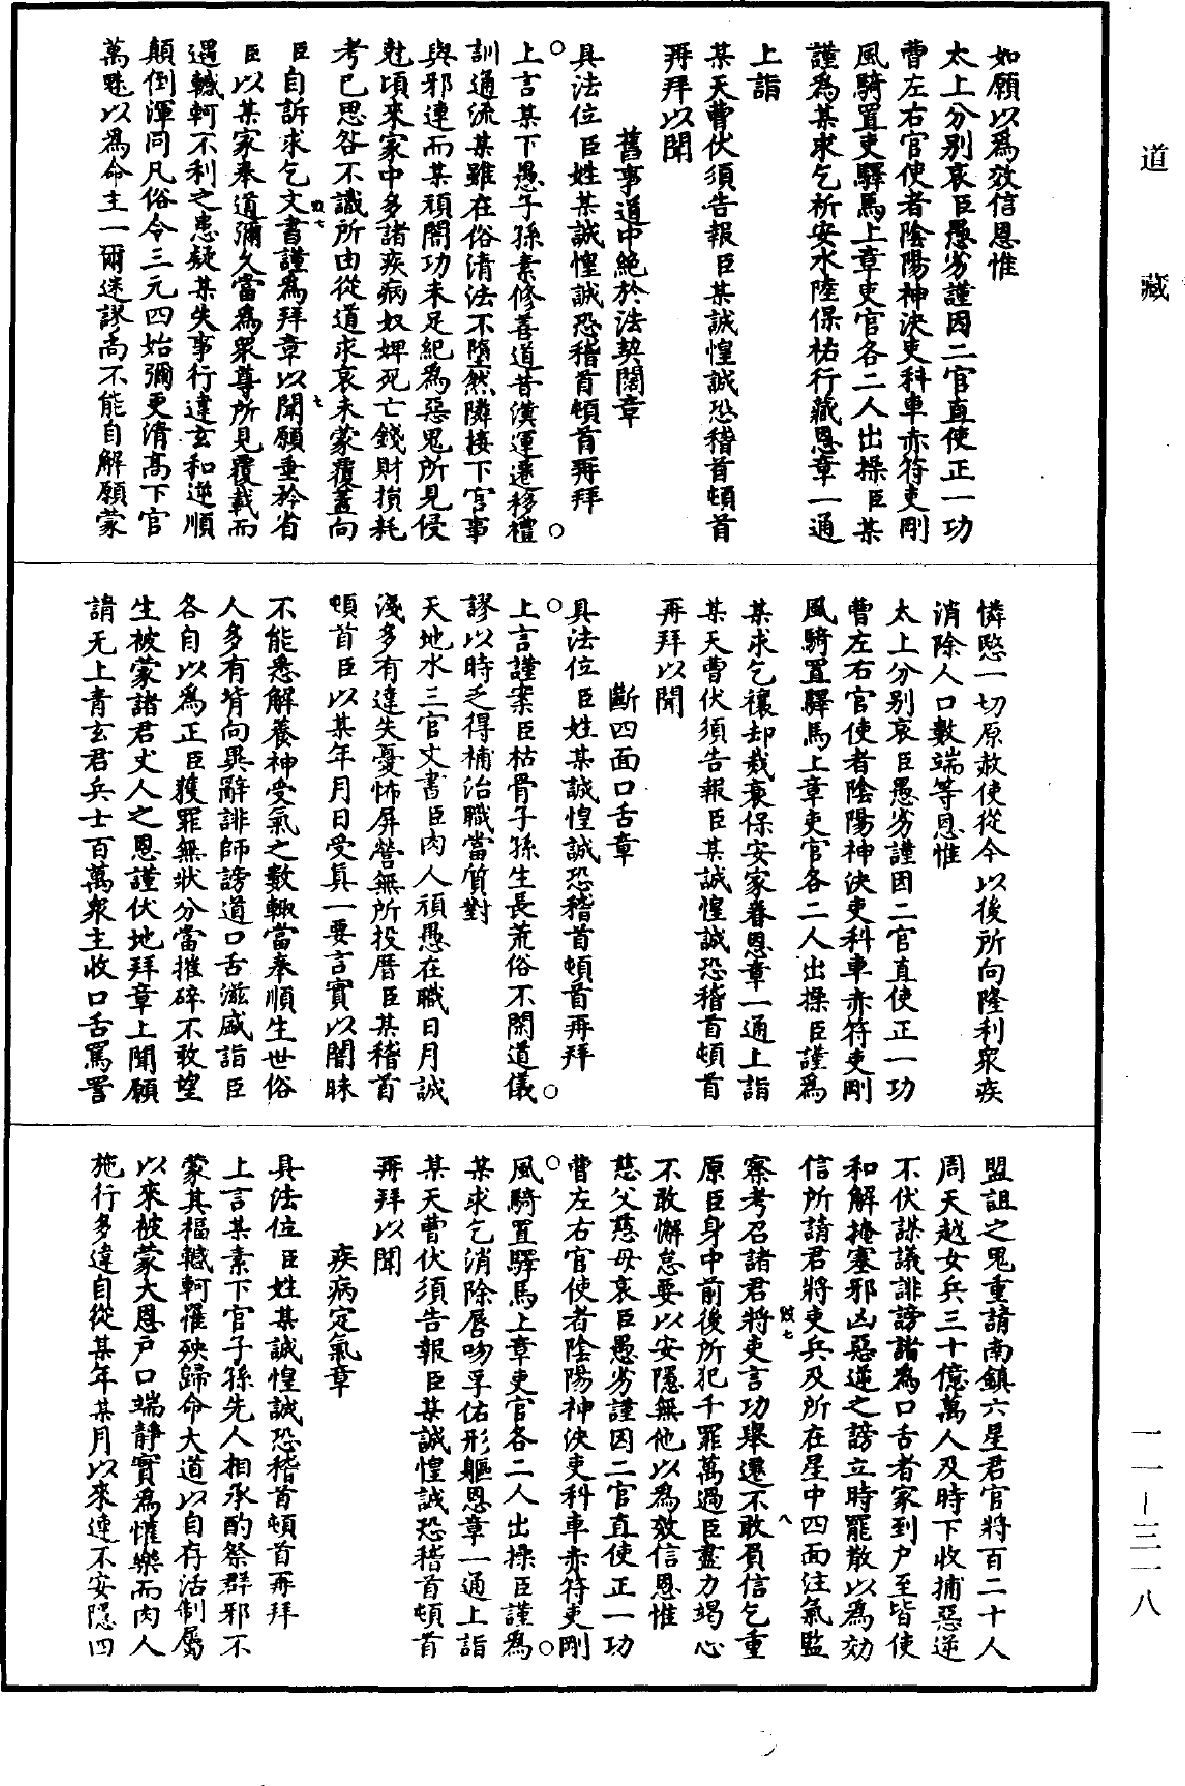 道藏
如願以爲效信恩惟
太上分別哀臣愚劣謹因二官直使正一功
曹左右官使者陰陽神決吏科車赤符吏剛
風騎置吏驛馬上章吏官各二人出操臣某
謹爲某求乞祈安水陸保祐行藏恩章一通
上詣
某天曹伏須告報臣某誠惶誠恐稽首頓首
再拜以聞
舊事道中絶於法契闊章
具法位臣姓某誠惶誠恐稽首頓首再拜
上言某下愚子孫素修善道昔漢運遷移禮
訓通流某雖在俗清法不墮然隣接下官事
與邪連而某頑闇功未足紀爲惡鬼所見侵
尅頃來家中多諸疾病奴婢死亡錢財損耗
考已思咎不識所由從道求哀未蒙覆蓋向
臣自訴求乞文書謹爲拜章以聞願垂矜省
臣以某家奉道彌久當爲衆尊所見覆載而
遇轗軻不利之患疑某失事行違玄和逆順
顛倒渾同凡俗令三元四始彌更清高下官
萬魅以爲命主一爾迷謬尚不能自解願蒙
憐愍一切原赦使從今以後所向隆利衆疾
消除人口數端等恩惟
太上分別哀臣愚劣謹因二官直使正一功
曹左右官使者陰陽神決吏科車赤符吏剛
風騎置驛馬上章吏官各二人出操臣謹爲
某求乞禳却栽衰保安家眷恩章一通上詣
某天曹伏須告報臣某誠惶誠恐稽首頓首
再拜以聞
斷四面口舌章
具法位臣姓某誠惶誠恐稽首頓首再拜
上言謹案臣枯骨子孫生長荒俗不閑道儀
謬以時乏得補治職當質對
天地水三官文書臣肉人頑愚在職日月誠
淺多有違失憂怖屏營無所投厝臣某稽首
頓首臣以某年月日受真一要言實以闇昧
不能悉解養神受氣之數輒當奉順生世俗
人多有背向異辭誹師謗道口舌滋盛詣臣
各自以爲正臣獲罪無狀分當摧碎不敢望
生被蒙諸君丈人之恩謹伏地拜章上聞願
請无上青玄君兵士百萬衆主收口舌罵詈
盟詛之鬼重請南鎮六星君官將百二十人
周天越女兵三十億萬人及時下收捕惡逆
不伏謀議誹謗諸爲口舌者家到户至皆使
和解掩塞邪凶惡逆之謗立時罷散以爲効
信所請君將吏兵及所在星中四面注氣監
察考召諸君將吏言功舉遷不敢負信乞重
原臣身中前後所犯千罪萬過臣盡力竭心
不敢懈怠要以安隱無他以爲效信恩惟
慈父慈母哀臣愚劣謹因二官直使正一功
曹左右官使者陰陽神決吏科車赤符吏剛
風騎置驛馬上章吏官各二人出操臣謹爲
某求乞消除唇吻孚佑形軀恩章一通上詣
某天曹伏須告報臣某誠惶誠恐稽首頓首
再拜以聞
疾病定氣章
具法位臣姓某誠惶誠恐稽首頓首再拜
上言某素下官子孫先人相承酌祭群邪不
蒙其福轗軻罹殃歸命大道以自存活制屬
以來被蒙大恩户口端静實爲懽樂而肉人
施行多違自從某年某月以來連不安隱四
一一—三一八